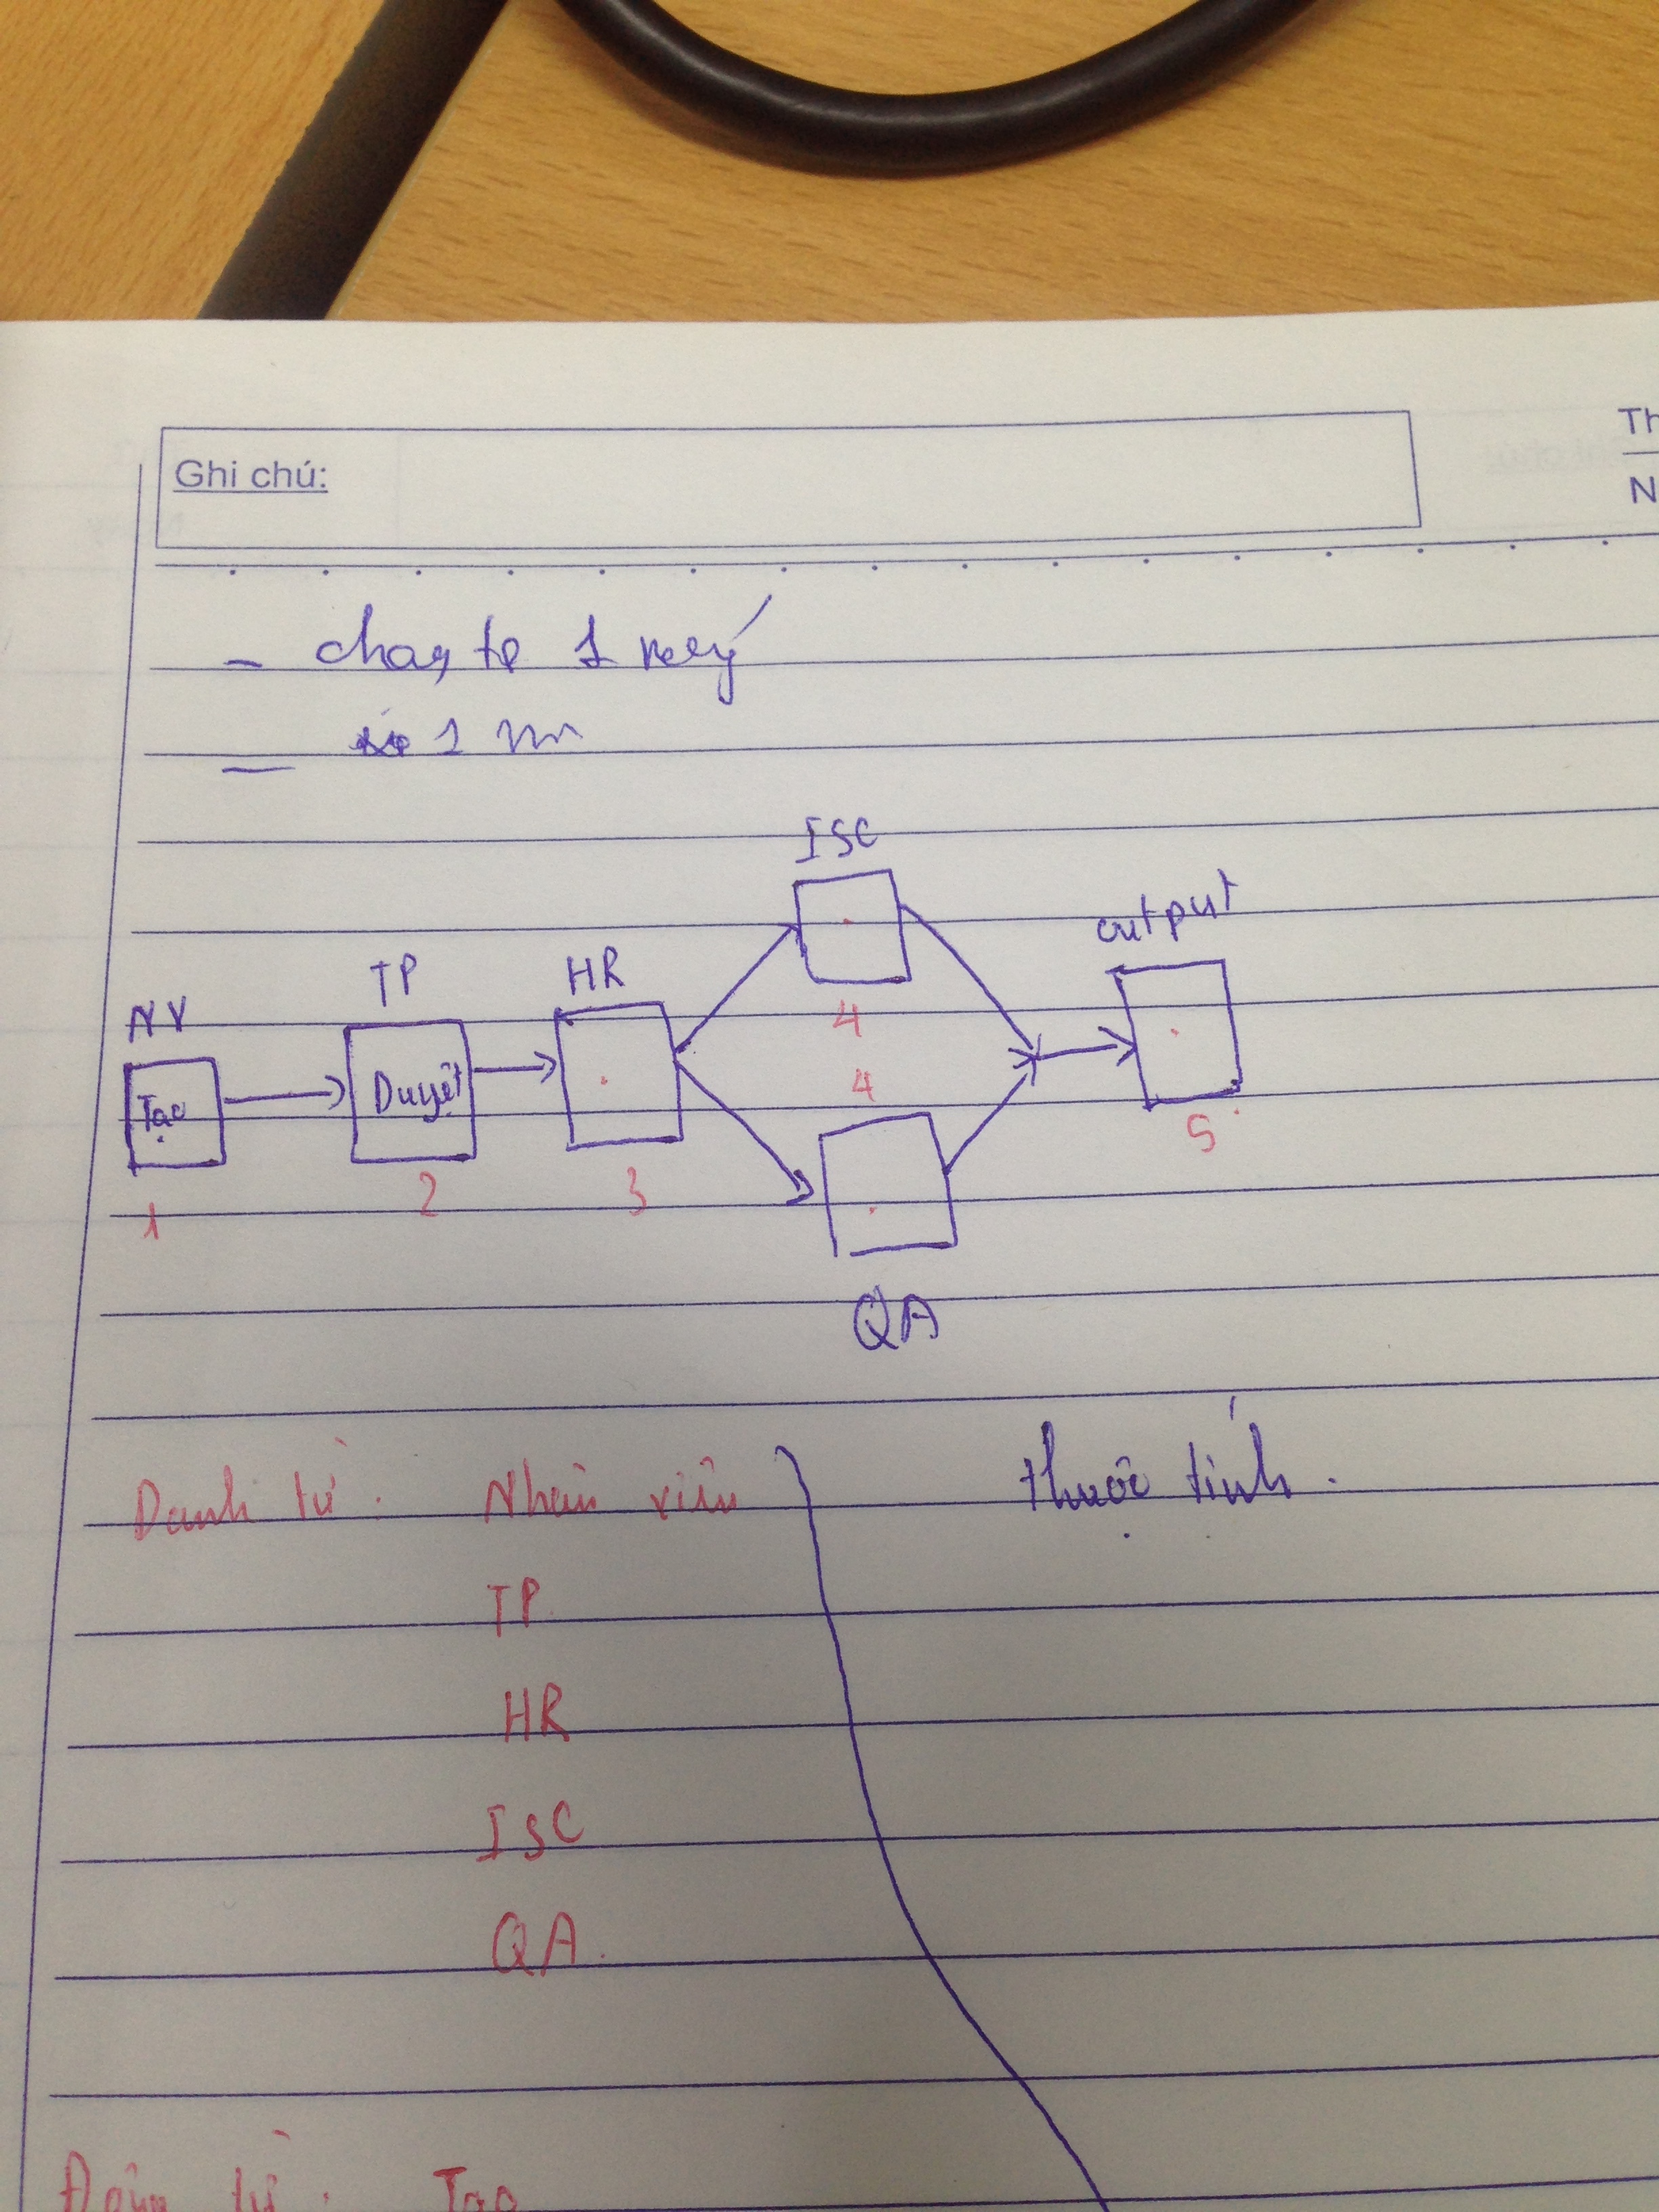 Ghi chú:
Th
N
1
1
ISC
output
HR
TP
NV
Tạo
Duyệt
4
4
5
1
2
3
QA
Danh từ: Nhân viên
thuộc tính.
TP
HR
ISC
QA.
Động từ: Tạo